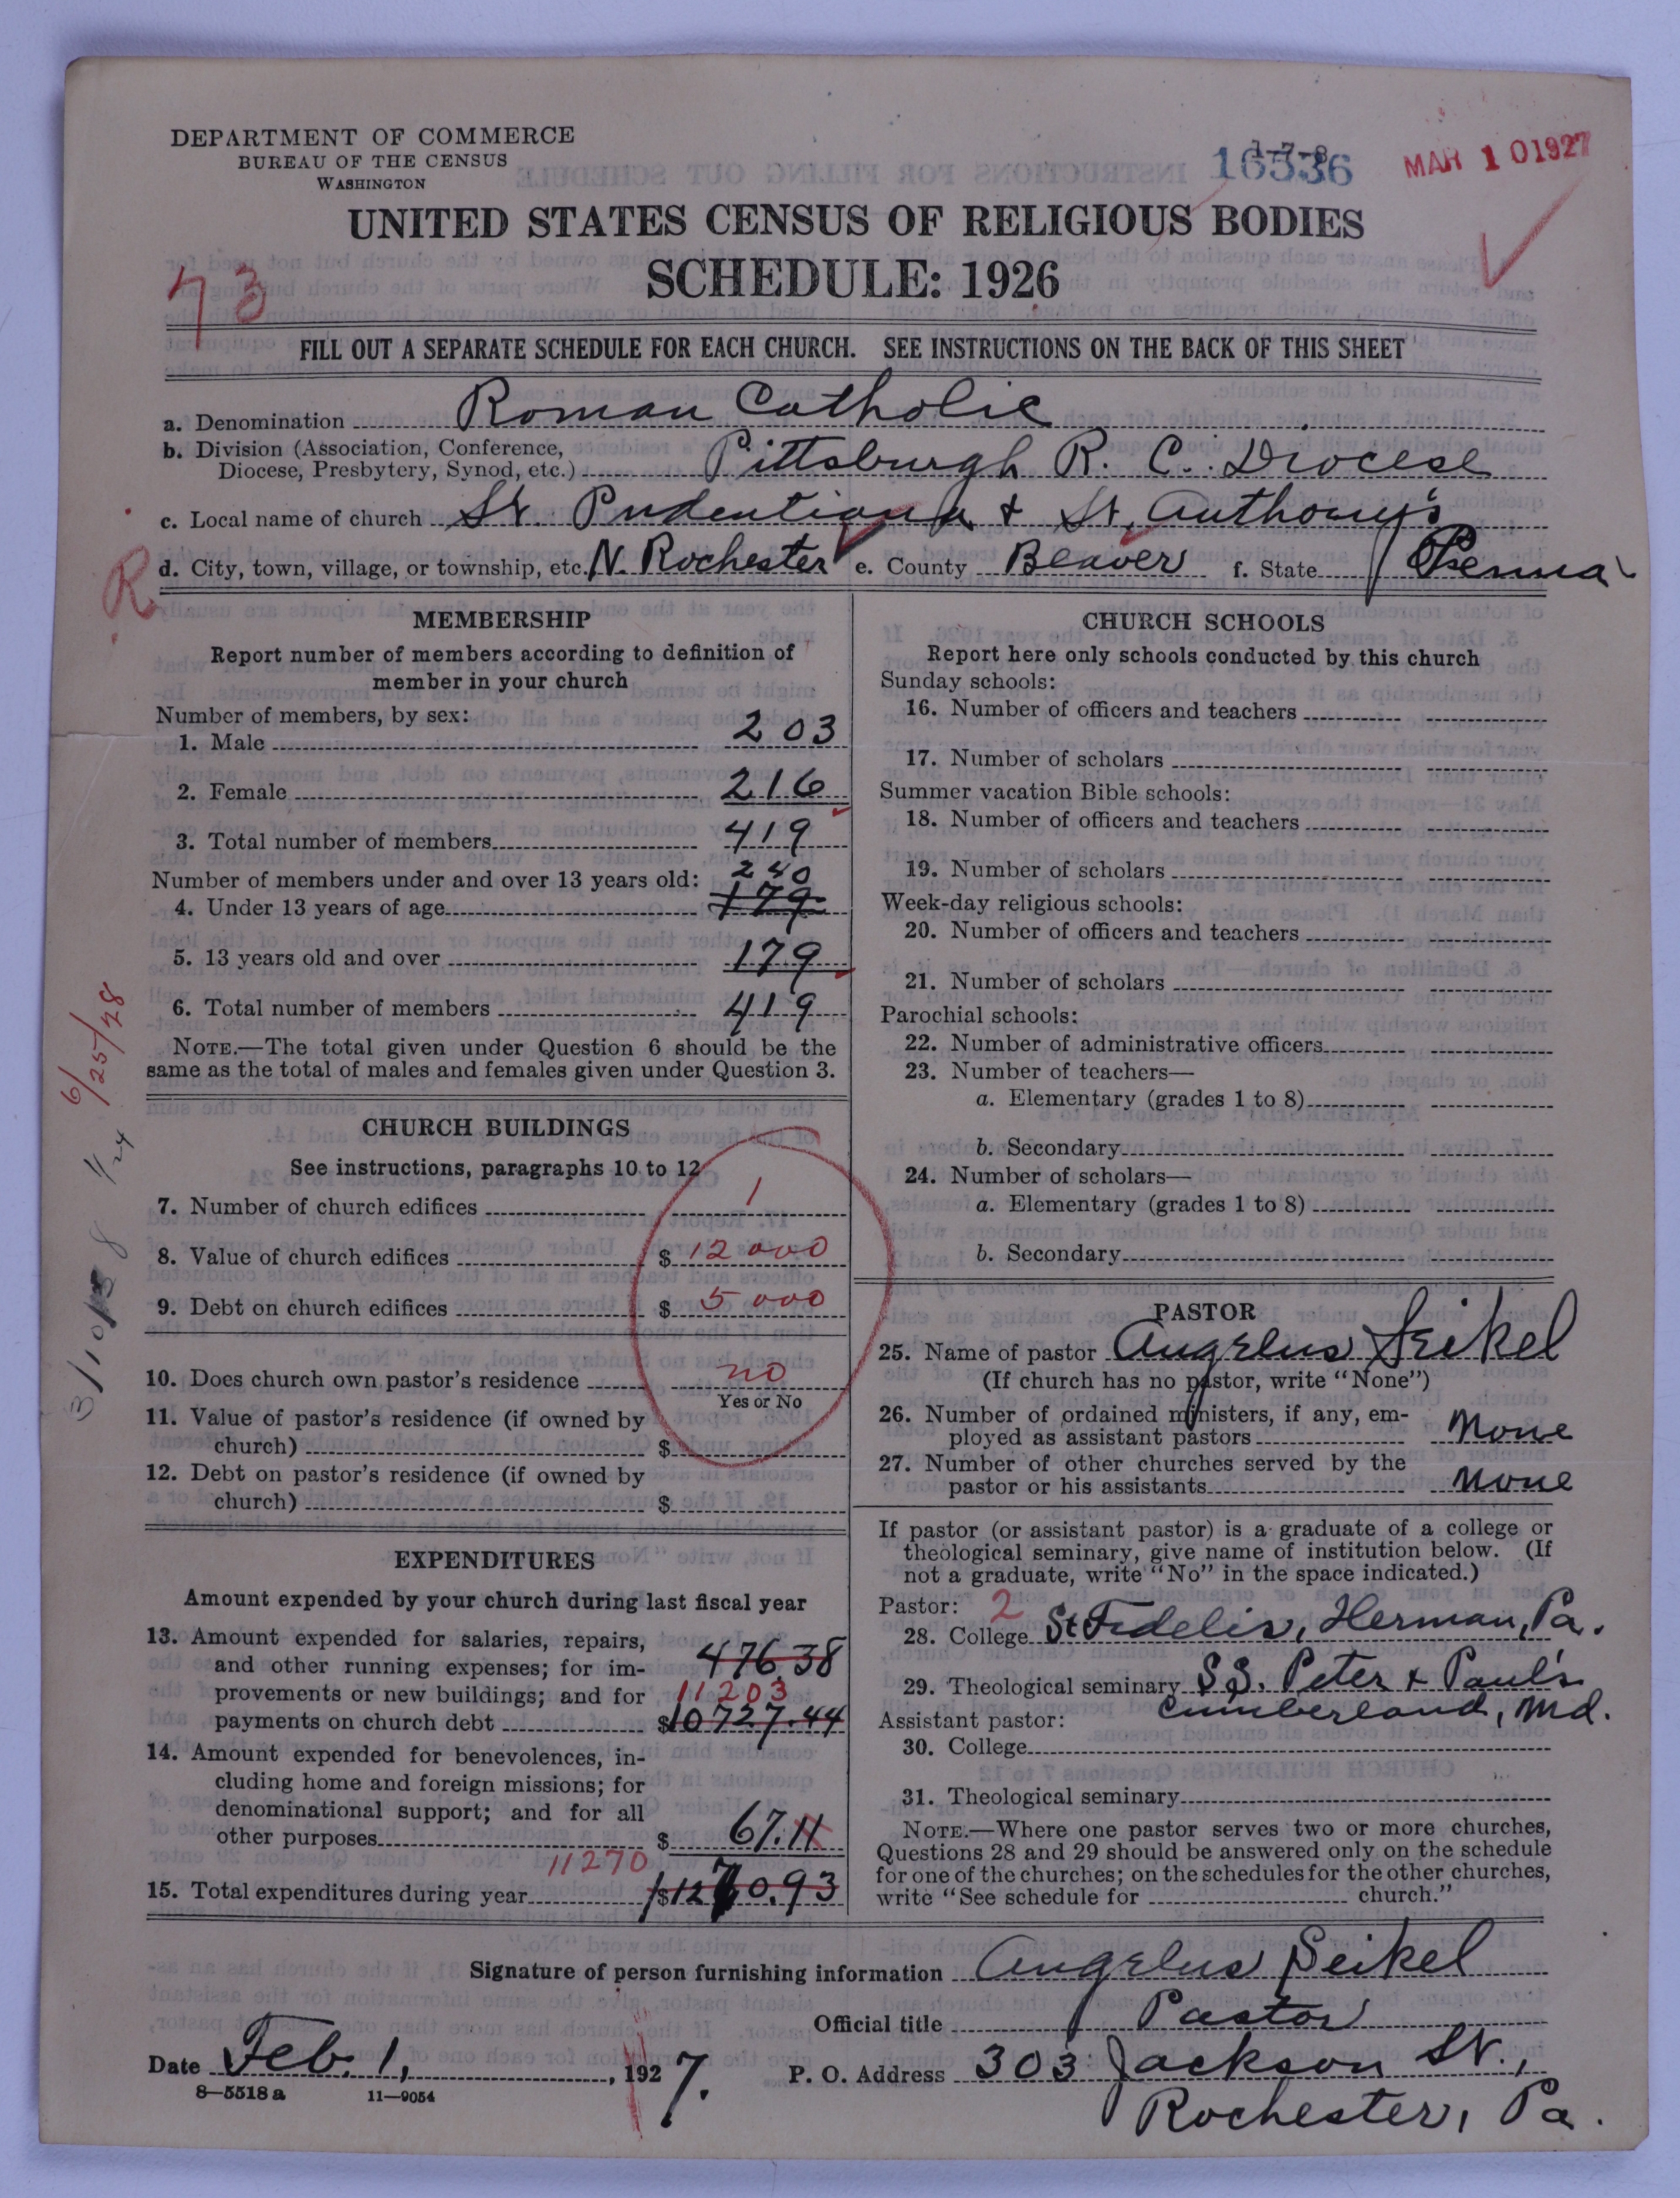 DEPARTMENT OF COMMERCE
BUREAU OF THE CENSUS
WASHINGTON
1-7-8
16536
MAR 10 1927
UNITED STATES CENSUS OF RELIGIOUS BODIES
SCHEDULE: 1926
73
FILL OUT A SEPARATE SCHEDULE FOR EACH CHURCH. SEE INSTRUCTIONS ON THE BACK OF THIS SHEET
a. Denomination Roman Catholic
b. Division (Association, Conference,
Diocese, Presbytery, Synod, etc.) Pittsburgh R. C. Diocese
c. Local name of church St. Pudentiana + St. Anthony's
d. City, town, village, or township, etc. N. Rochester e. County Beaver f. State Penna
R
MEMBERSHIP
Report number of members according to definition of
member in your church
Number of members, by sex:
1. Male 203
2. Female 216
3. Total number of members 419
Number of members under and over 13 years old: 240
4. Under 13 years of age 179
5. 13 years old and over 179
6. Total number of members 419
NOTE.—The total given under Question 6 should be the
same as the total of males and females given under Question 3.
6/25/28
CHURCH BUILDINGS
See instructions, paragraphs 10 to 12
7. Number of church edifices 1
8. Value of church edifices $ 12000
9. Debt on church edifices $ 5000
10. Does church own pastor's residence no
Yes or No
11. Value of pastor's residence (if owned by
church) $
12. Debt on pastor's residence (if owned by
church) $
EXPENDITURES
Amount expended by your church during last fiscal year
13. Amount expended for salaries, repairs,
and other running expenses; for im- 476.38
provements or new buildings; and for 11203
payments on church debt $10727.44
14. Amount expended for benevolences, in-
cluding home and foreign missions; for
denominational support; and for all
other purposes $ 67.11
11270
15. Total expenditures during year $ 1270.93
CHURCH SCHOOLS
Report here only schools conducted by this church
Sunday schools:
16. Number of officers and teachers
17. Number of scholars
Summer vacation Bible schools:
18. Number of officers and teachers
19. Number of scholars
Week-day religious schools:
20. Number of officers and teachers
21. Number of scholars
Parochial schools:
22. Number of administrative officers
23. Number of teachers—
a. Elementary (grades 1 to 8)
b. Secondary
24. Number of scholars—
a. Elementary (grades 1 to 8)
b. Secondary
PASTOR
25. Name of pastor Angelus Seikel
(If church has no pastor, write "None")
26. Number of ordained ministers, if any, em-
ployed as assistant pastors None
27. Number of other churches served by the
pastor or his assistants None
If pastor (or assistant pastor) is a graduate of a college or
theological seminary, give name of institution below. (If
not a graduate, write "No" in the space indicated.)
Pastor: 2
28. College St Fidelis, Herman, Pa.
29. Theological seminary S.S. Peter + Paul's
Cumberland, Md.
Assistant pastor:
30. College
31. Theological seminary
NOTE.—Where one pastor serves two or more churches,
Questions 28 and 29 should be answered only on the schedule
for one of the churches; on the schedules for the other churches,
write "See schedule for church."
Signature of person furnishing information Angelus Seikel
Official title Pastor
Date Feb. 1, 1927. P. O. Address 303 Jackson St.,
Rochester, Pa.
8—5518 a 11—9054